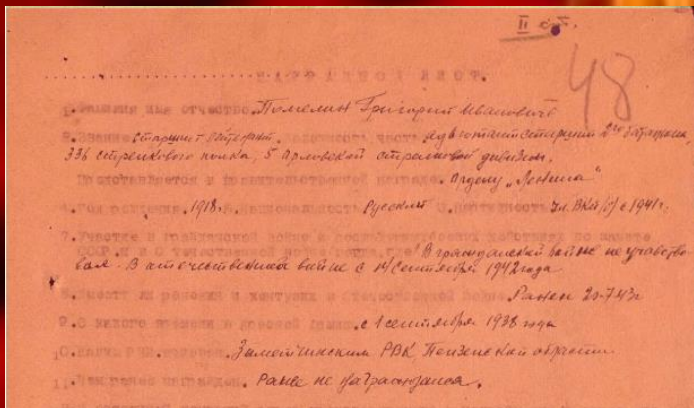 II ст.
48
НАГРАДНОЙ ЛИСТ.
1. Фамилия имя отчество Помелин Григорий Иванович
2. Звание старший лейтенант. Должность часть адъютант старший 2го батальона,
336 стрелкового полка, 5 Орловской стрелковой дивизии.
Представляется к правительственной награде. Ордену „Ленина"
4. Год рождения. 1918. 5. Национальность Русский 6. Партийность чл. ВКП(б) с 1941 г.
7. Участие в гражданской войне в последующих боевых действиях по защите
СССР и в отечественной войне В гражданской войне не участво-
вал. В отечественной войне с 14 сентября 1942 года
8. Имеет ли ранения и контузии в отечественной войне Ранен 20.7.43 г
9. С какого времени в Красной Армии. с 1 сентября 1938 года
10. Каким РВК призван. Земетчинским РВК Пензенской области
11. Чем ранее награжден. Ранее не награждался.